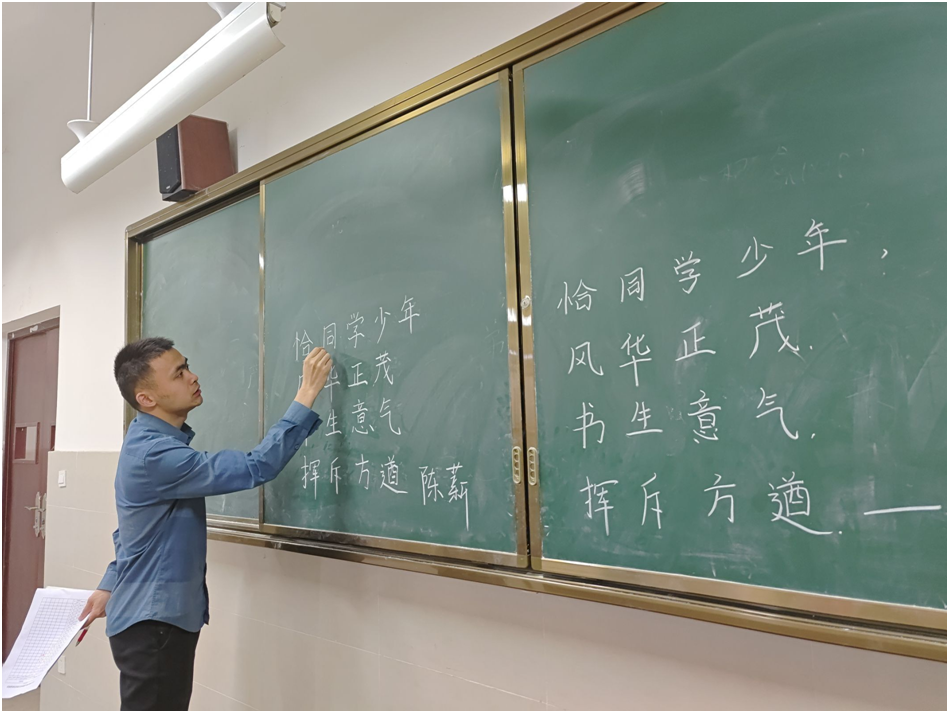 恰同学少年
华正茂
生意气
挥斥方遒 陈薪
恰同学少年，
风华正茂.
书生意气.
挥斥方遒. —